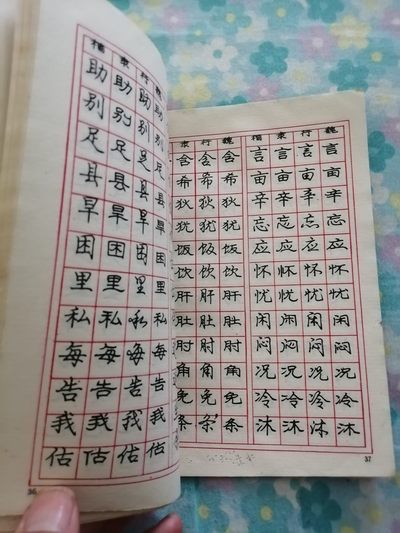 楷 隶 行 魏
助 助 助 助
别 别 别 别
足 足 足 足
县 县 县 县
旱 旱 旱 旱
困 困 困 困
里 里 里 里
私 私 私 私
每 每 每 每
告 告 告 告
我 我 我 我
估 估 估 估
36
隶 行 魏
含 含 含
希 希 希
狄 狄 狄
犹 犹 犹
饭 饭 饭
饮 饮 饮
肝 肝 肝
肚 肚 肚
肘 肘 肘
角 角 角
免 免 免
条 条 条
楷 隶 行 魏
言 言 言 言
亩 亩 亩 亩
辛 辛 辛 辛
忘 忘 忘 忘
应 应 应 应
怀 怀 怀 怀
忧 忧 忧 忧
闲 闲 闲 闲
闷 闷 闷 闷
况 况 况 况
冷 冷 冷 冷
沐 沐 沐 沐
37